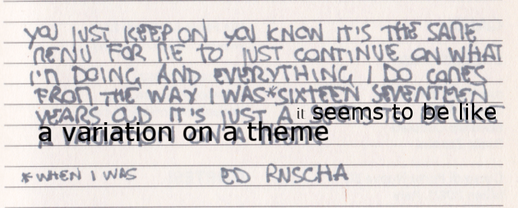 YOU JUST KEEP ON YOU KNOW IT'S THE SAME
MENU FOR ME TO JUST CONTINUE ON WHAT
I'M DOING AND EVERYTHING I DO COMES
FROM THE WAY I WAS*SIXTEEN SEVENTEEN
YEARS OLD IT'S JUST A it seems to be like
a variation on a theme
*WHEN I WAS ED RUSCHA